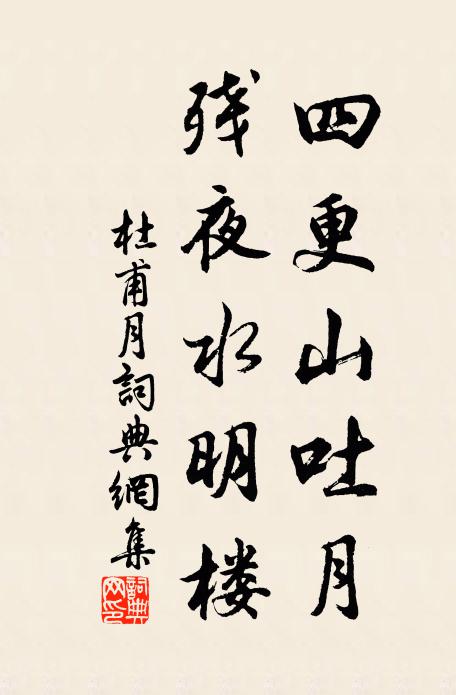 四更山吐月
残夜水明楼
杜甫月詞典網集
詞典网印